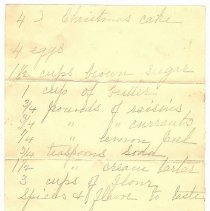 4 2 Christmas cake
4 eggs
1½ cups brown sugar
1 cup of butter
¾ pounds of raisins
¾ " " currants
¼ " lemon peel
¾ teaspoons soda
1½ " cream tartar
3 cups of flour
Spices & flavor to taste